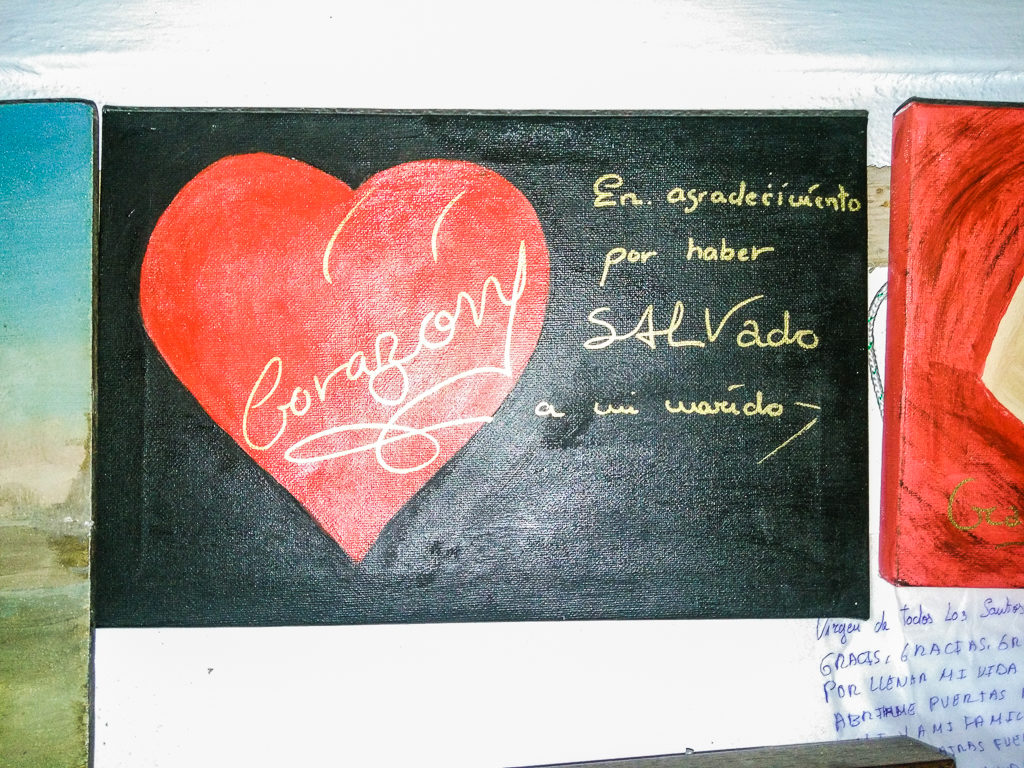 Corazón
En. agradecimiento
por haber
SALVado
a mi marido
Virgen de todos Los Santos
GRACIS, GRACIAS, GR
POR LLENAR MI VIDA
ABRIRME PUERTAS
A MI FAMIL